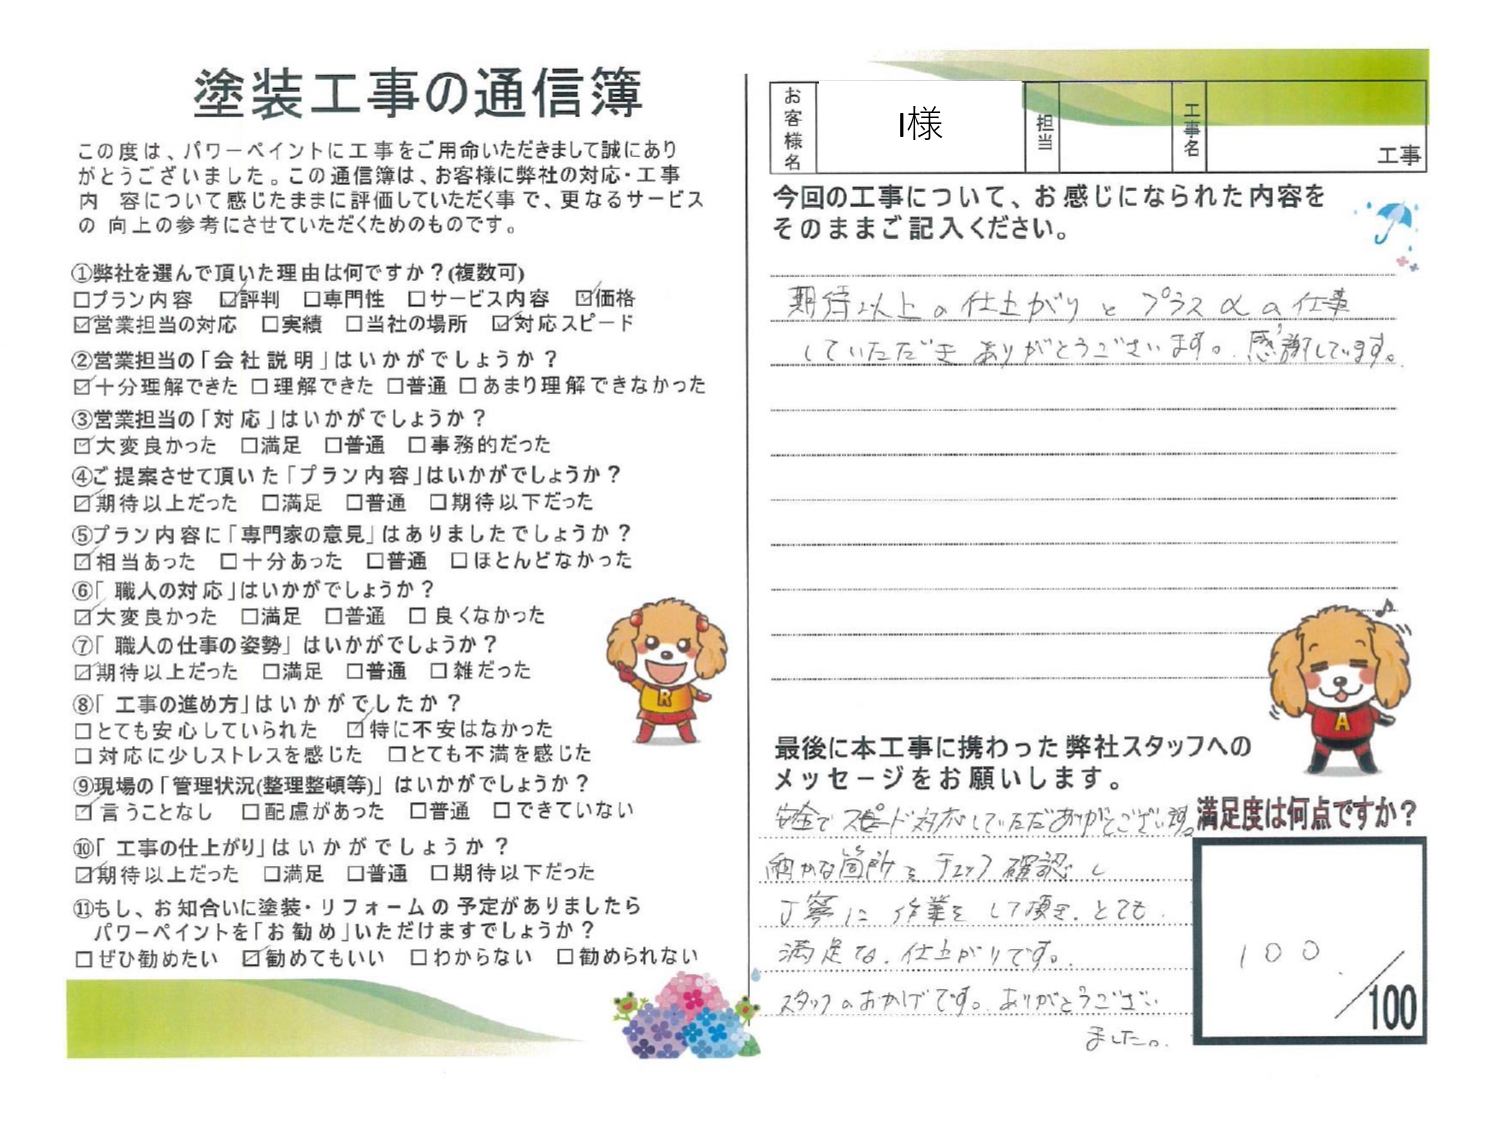 塗装工事の通信簿
この度は、パワーペイントに工事をご用命いただきまして誠にあり
がとうございました。この通信簿は、お客様に弊社の対応・工事
内 容について感じたままに評価していただく事で、更なるサービス
の 向上の参考にさせていただくためのものです。
①弊社を選んで頂いた理由は何ですか？(複数可)
□プラン内容 ☑評判 □専門性 □サービス内容 ☑価格
☑営業担当の対応 □実績 □当社の場所 ☑対応スピード
②営業担当の「会社説明」はいかがでしょうか？
☑十分理解できた □理解できた □普通 □あまり理解できなかった
③営業担当の「対応」はいかがでしょうか？
☑大変良かった □満足 □普通 □事務的だった
④ご提案させて頂いた「プラン内容」はいかがでしょうか？
☑期待以上だった □満足 □普通 □期待以下だった
⑤プラン内容に「専門家の意見」はありましたでしょうか？
☑相当あった □十分あった □普通 □ほとんどなかった
⑥「職人の対応」はいかがでしょうか？
☑大変良かった □満足 □普通 □良くなかった
⑦「職人の仕事の姿勢」はいかがでしょうか？
☑期待以上だった □満足 □普通 □雑だった
⑧「工事の進め方」はいかがでしたか？
□とても安心していられた ☑特に不安はなかった
□対応に少しストレスを感じた □とても不満を感じた
⑨現場の「管理状況(整理整頓等)」はいかがでしょうか？
☑言うことなし □配慮があった □普通 □できていない
⑩「工事の仕上がり」はいかがでしょうか？
☑期待以上だった □満足 □普通 □期待以下だった
⑪もし、お知合いに塗装・リフォームの予定がありましたら
パワーペイントを「お勧め」いただけますでしょうか？
□ぜひ勧めたい ☑勧めてもいい □わからない □勧められない
R
お客様名 I様 担当 工事名 工事
今回の工事について、お感じになられた内容を
そのままご記入ください。
期待以上の仕上がりとプラスαの仕事
していただきありがとうございます。感謝しています。
A
最後に本工事に携わった弊社スタッフへの
メッセージをお願いします。
安全でスピード対応していただありがとうございます。
細かな箇所をチェック確認し
丁寧に作業をして頂き、とても
満足な、仕上がりです。
スタッフのおかげです。ありがとうござい
ました。
満足度は何点ですか？
100
／100